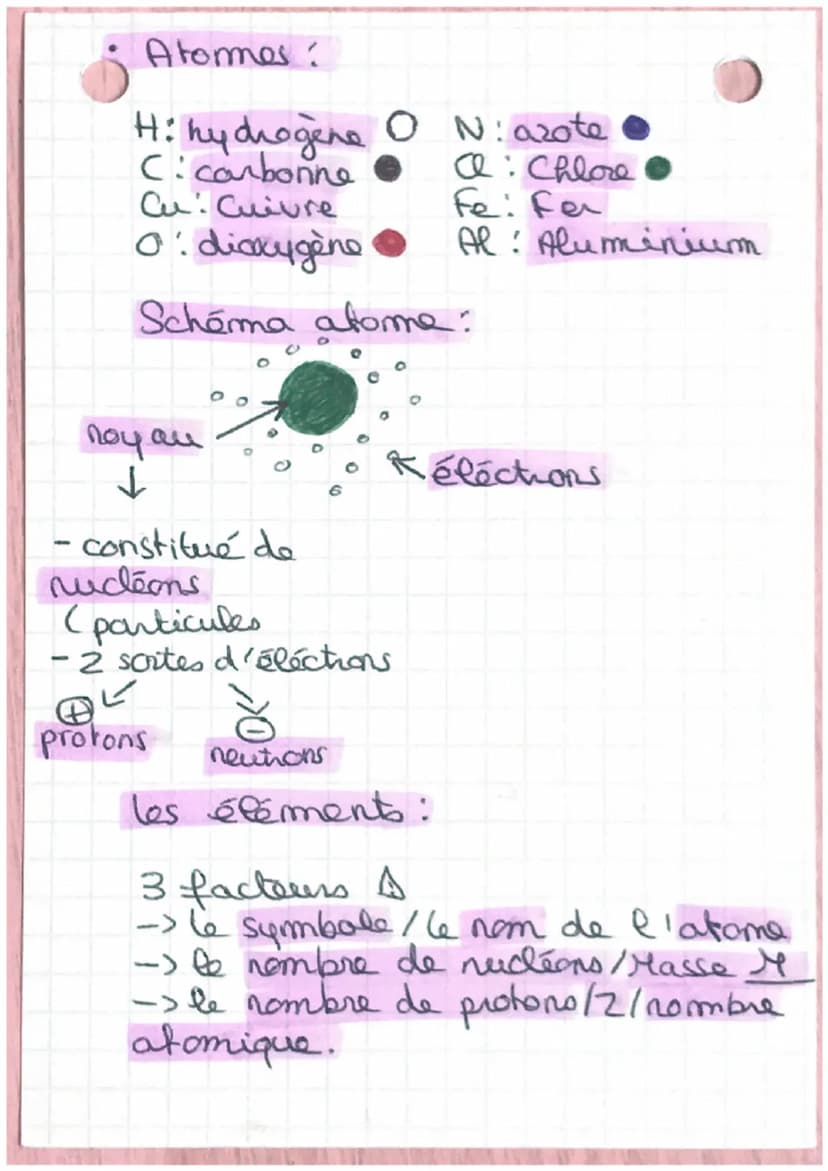 • Atomes :
H : hydrogène N : azote
C : carbonne Cl : Chlore
Cu : Cuivre Fe : Fer
O : dioxygène Al : Aluminium
Schéma atome :
noyau
éléctrons
- constitué de
nucléons
( particules
- 2 sortes d'éléctrons
+ -
protons neutrons
les éléments :
3 facteurs ⚠
-> le symbole / le nom de l'atome
-> le nombre de nucléons / Masse M
-> le nombre de protons / Z / nombre
atomique.